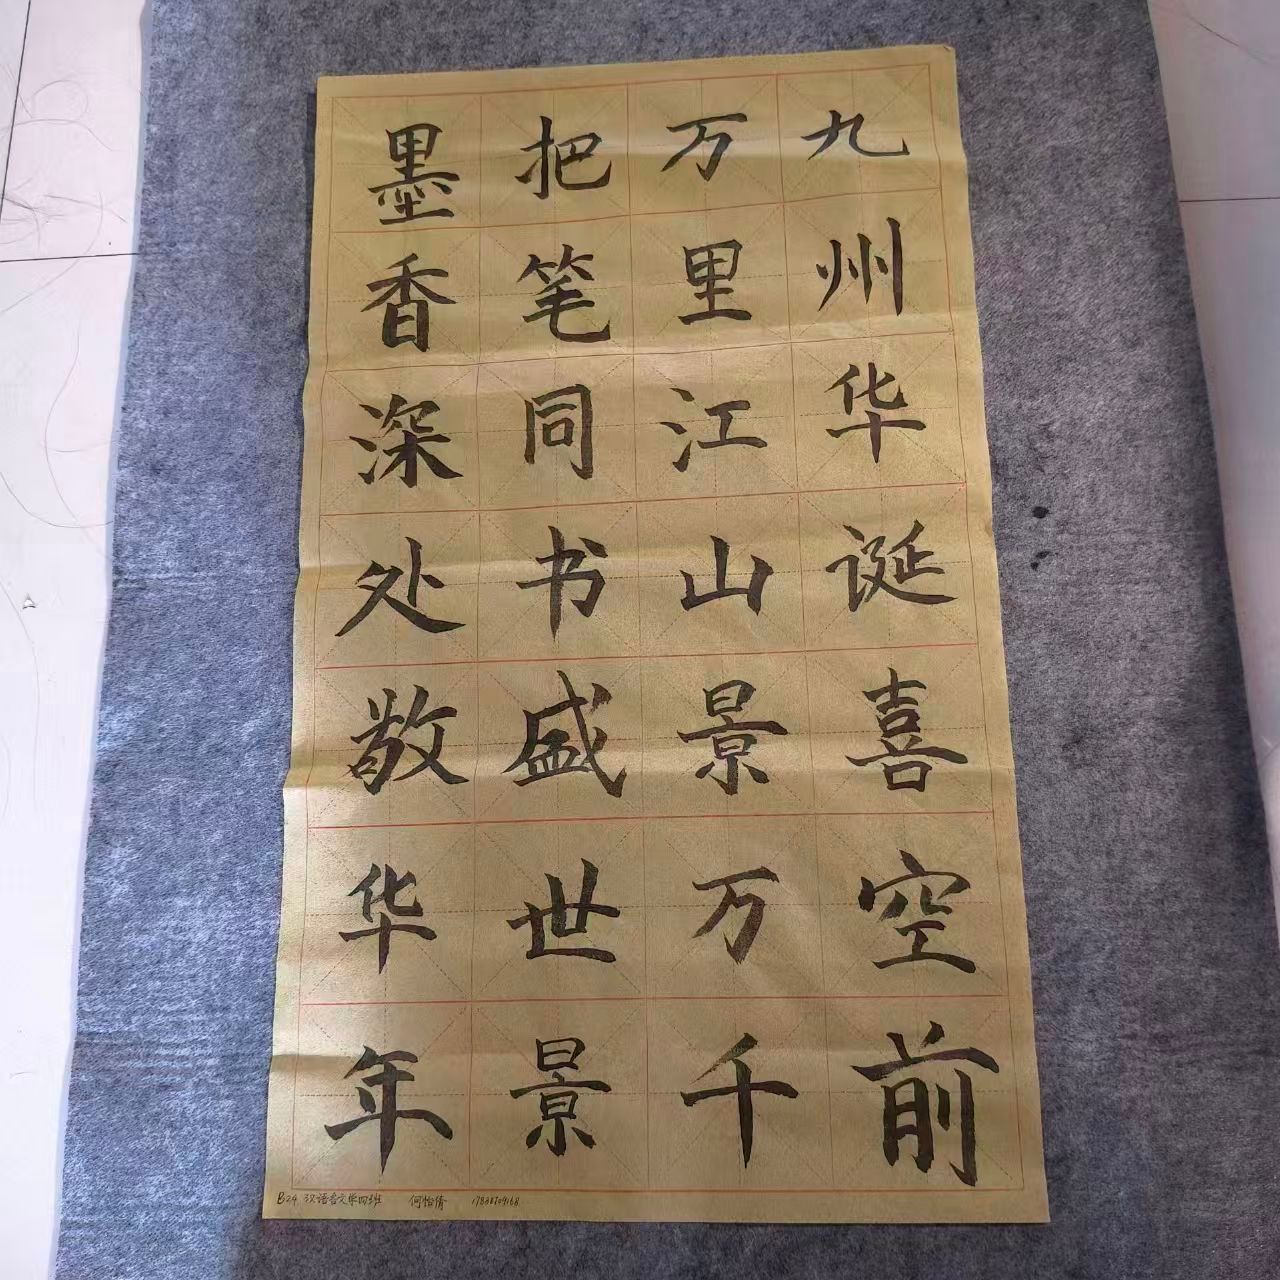 九州华诞喜空前
万里江山景万千
把笔同书盛世景
墨香深处敬华年
B24 汉语言文学四班 何怡倩